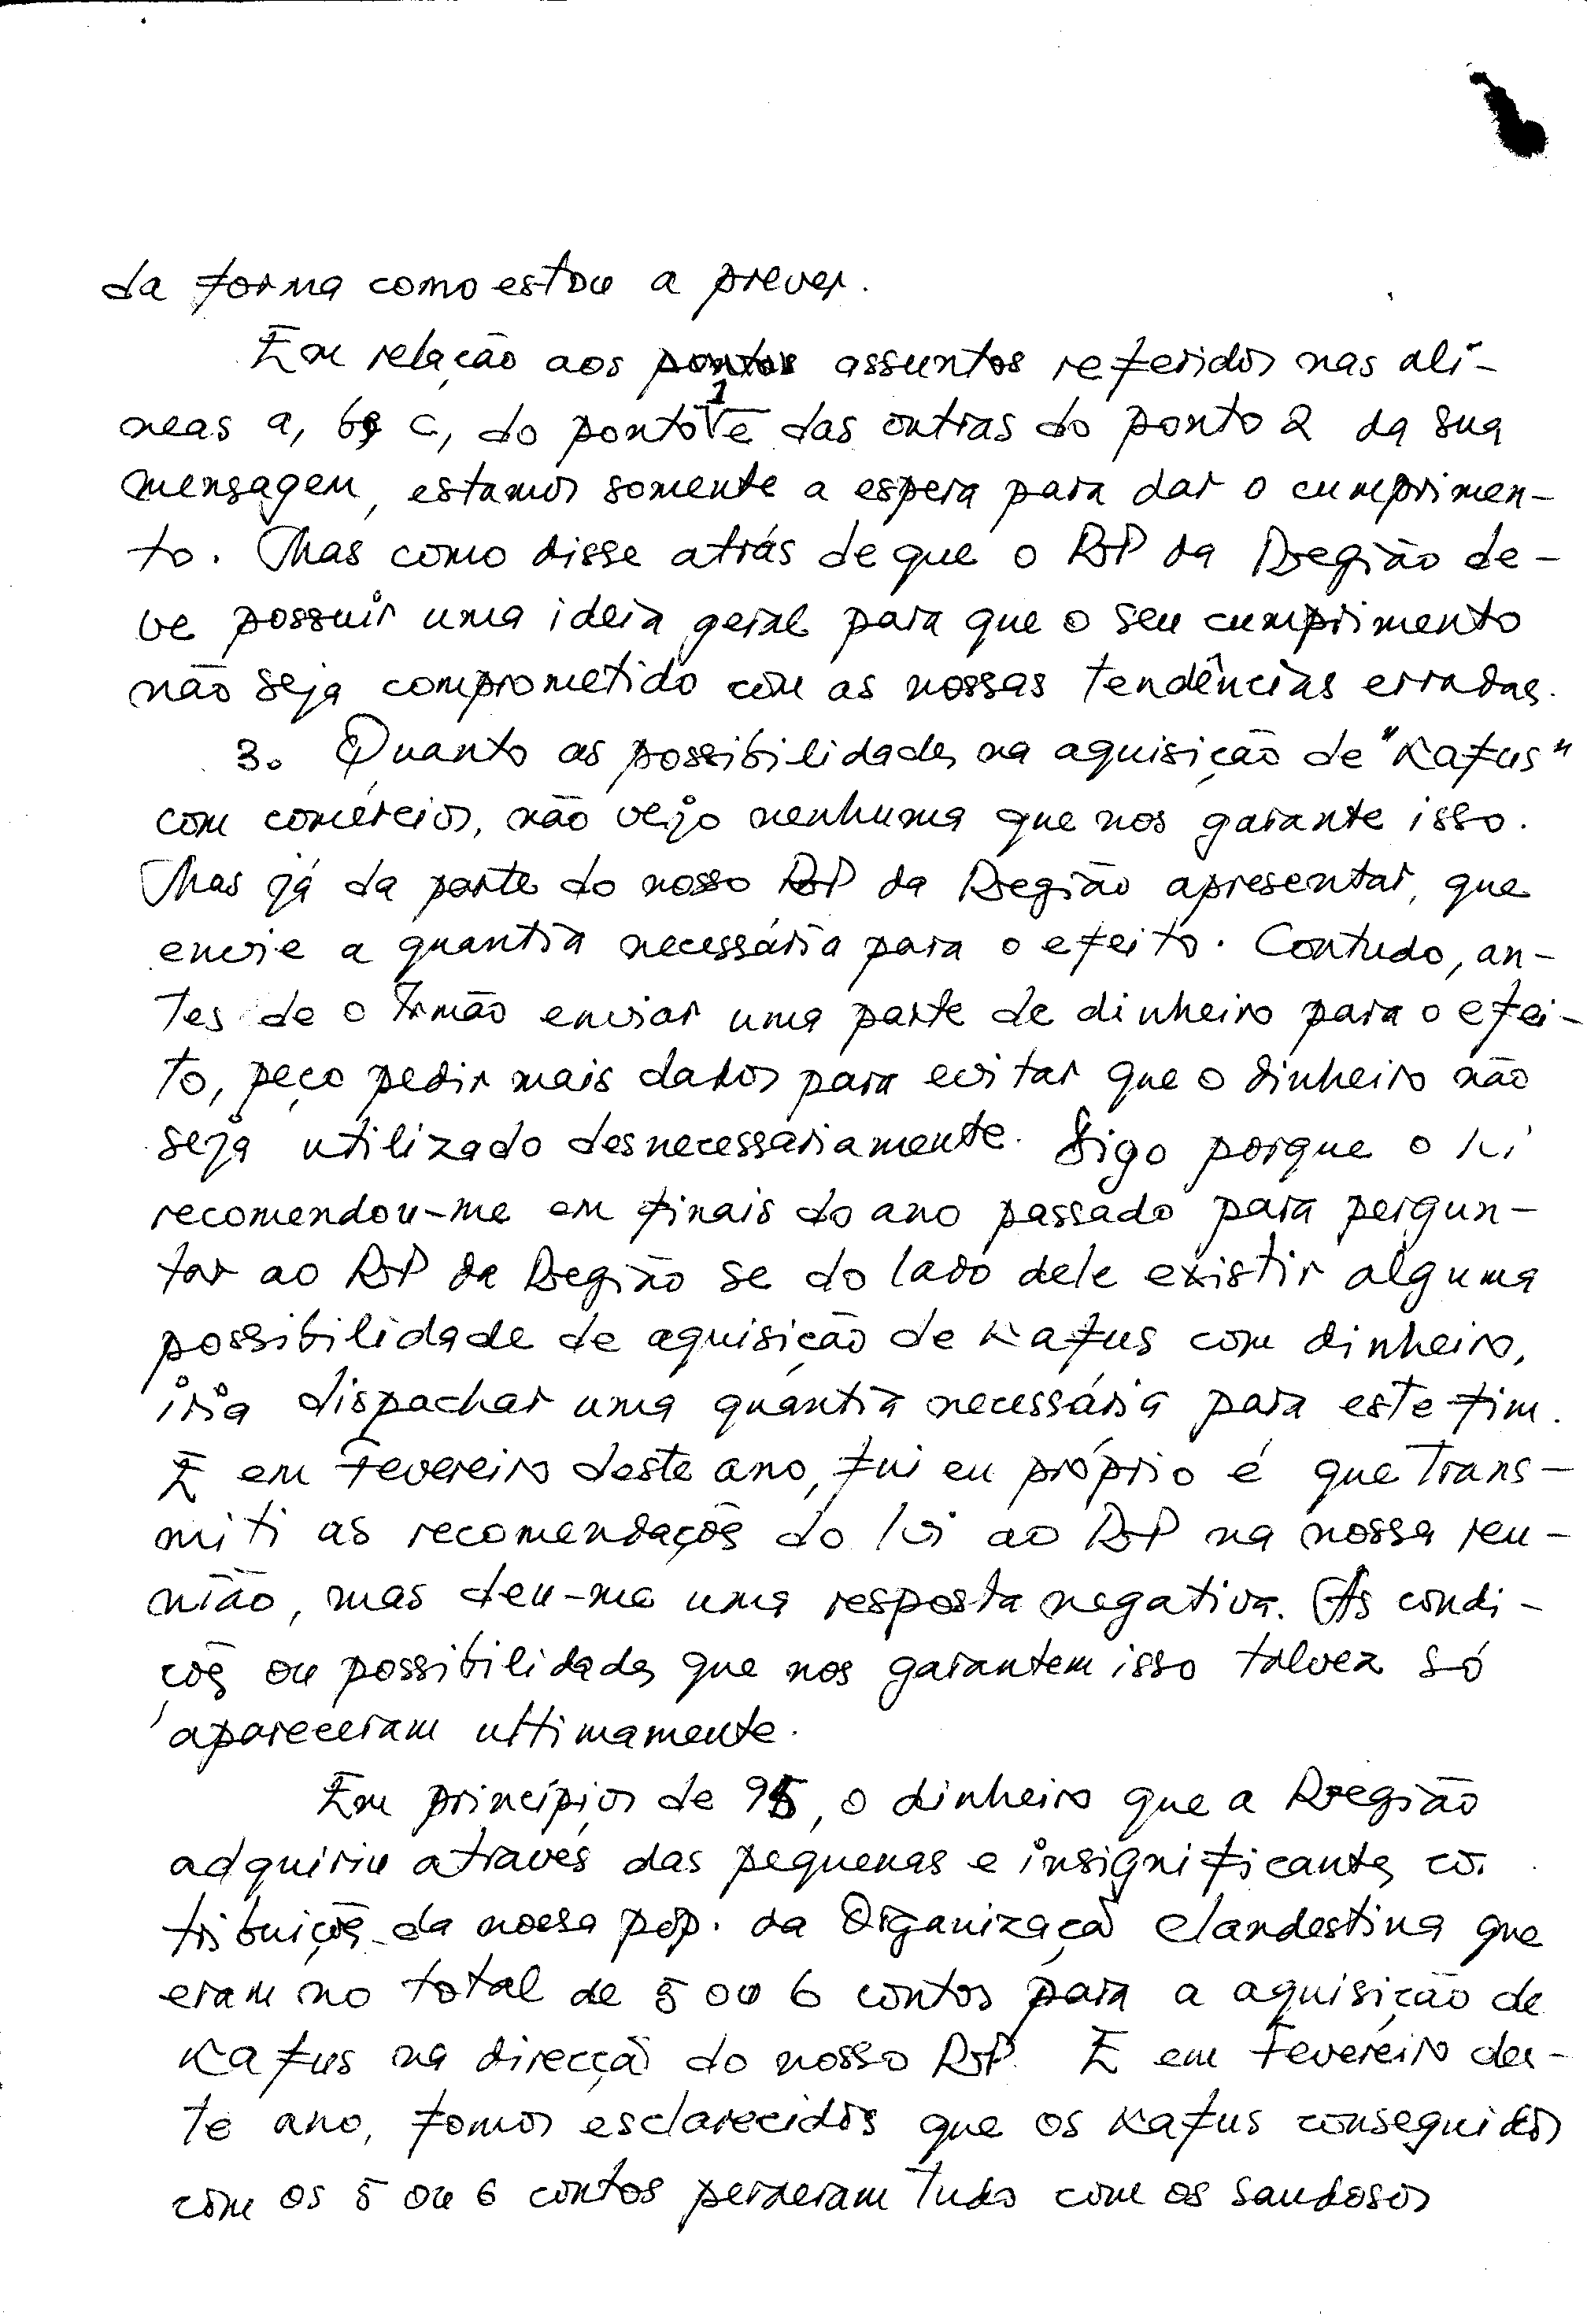 da forma como estou a prever.
Em relação aos pontos assuntos referidos nas alí-
neas a, b, c, do ponto 1 e das outras do ponto 2 da sua
mensagem, estamos somente a espera para dar o cumprimen-
to. Mas como disse atrás de que o RP da Região de-
ve possuir uma ideia geral para que o seu cumprimento
não seja comprometido com as nossas tendências erradas.
3. Quanto as possibilidades na aquisição de "Kafus"
com comércios, não vejo nenhuma que nos garante isso.
Mas já da parte do nosso RP da Região apresentar, que
envie a quantia necessária para o efeito. Contudo, an-
tes de o Irmão enviar uma parte de dinheiro para o efei-
to, peço pedir mais dados para evitar que o dinheiro não
seja utilizado desnecessariamente. Digo porque o
recomendou-me em finais do ano passado para pergun-
tar ao RP da Região se do lado dele existir alguma
possibilidade de aquisição de Kafus com dinheiro,
iria dispachar uma quantia necessária para este fim.
E em Fevereiro deste ano, fui eu próprio é que trans-
miti as recomendações do ao RP na nossa reu-
nião, mas deu-me uma resposta negativa. As condi-
ções ou possibilidades que nos garantem isso talvez só
apareceram ultimamente.
Em princípios de 95, o dinheiro que a Região
adquiriu através das pequenas e insignificantes cō.
tribuições da nossa pop. da Organização clandestina que
eram no total de 5 ou 6 contos para a aquisição de
Kafus na direcção do nosso RP. E em Fevereiro des-
te ano, fomos esclarecidos que os Kafus conseguidos
com os 5 ou 6 contos perderam tudo com os saudosos